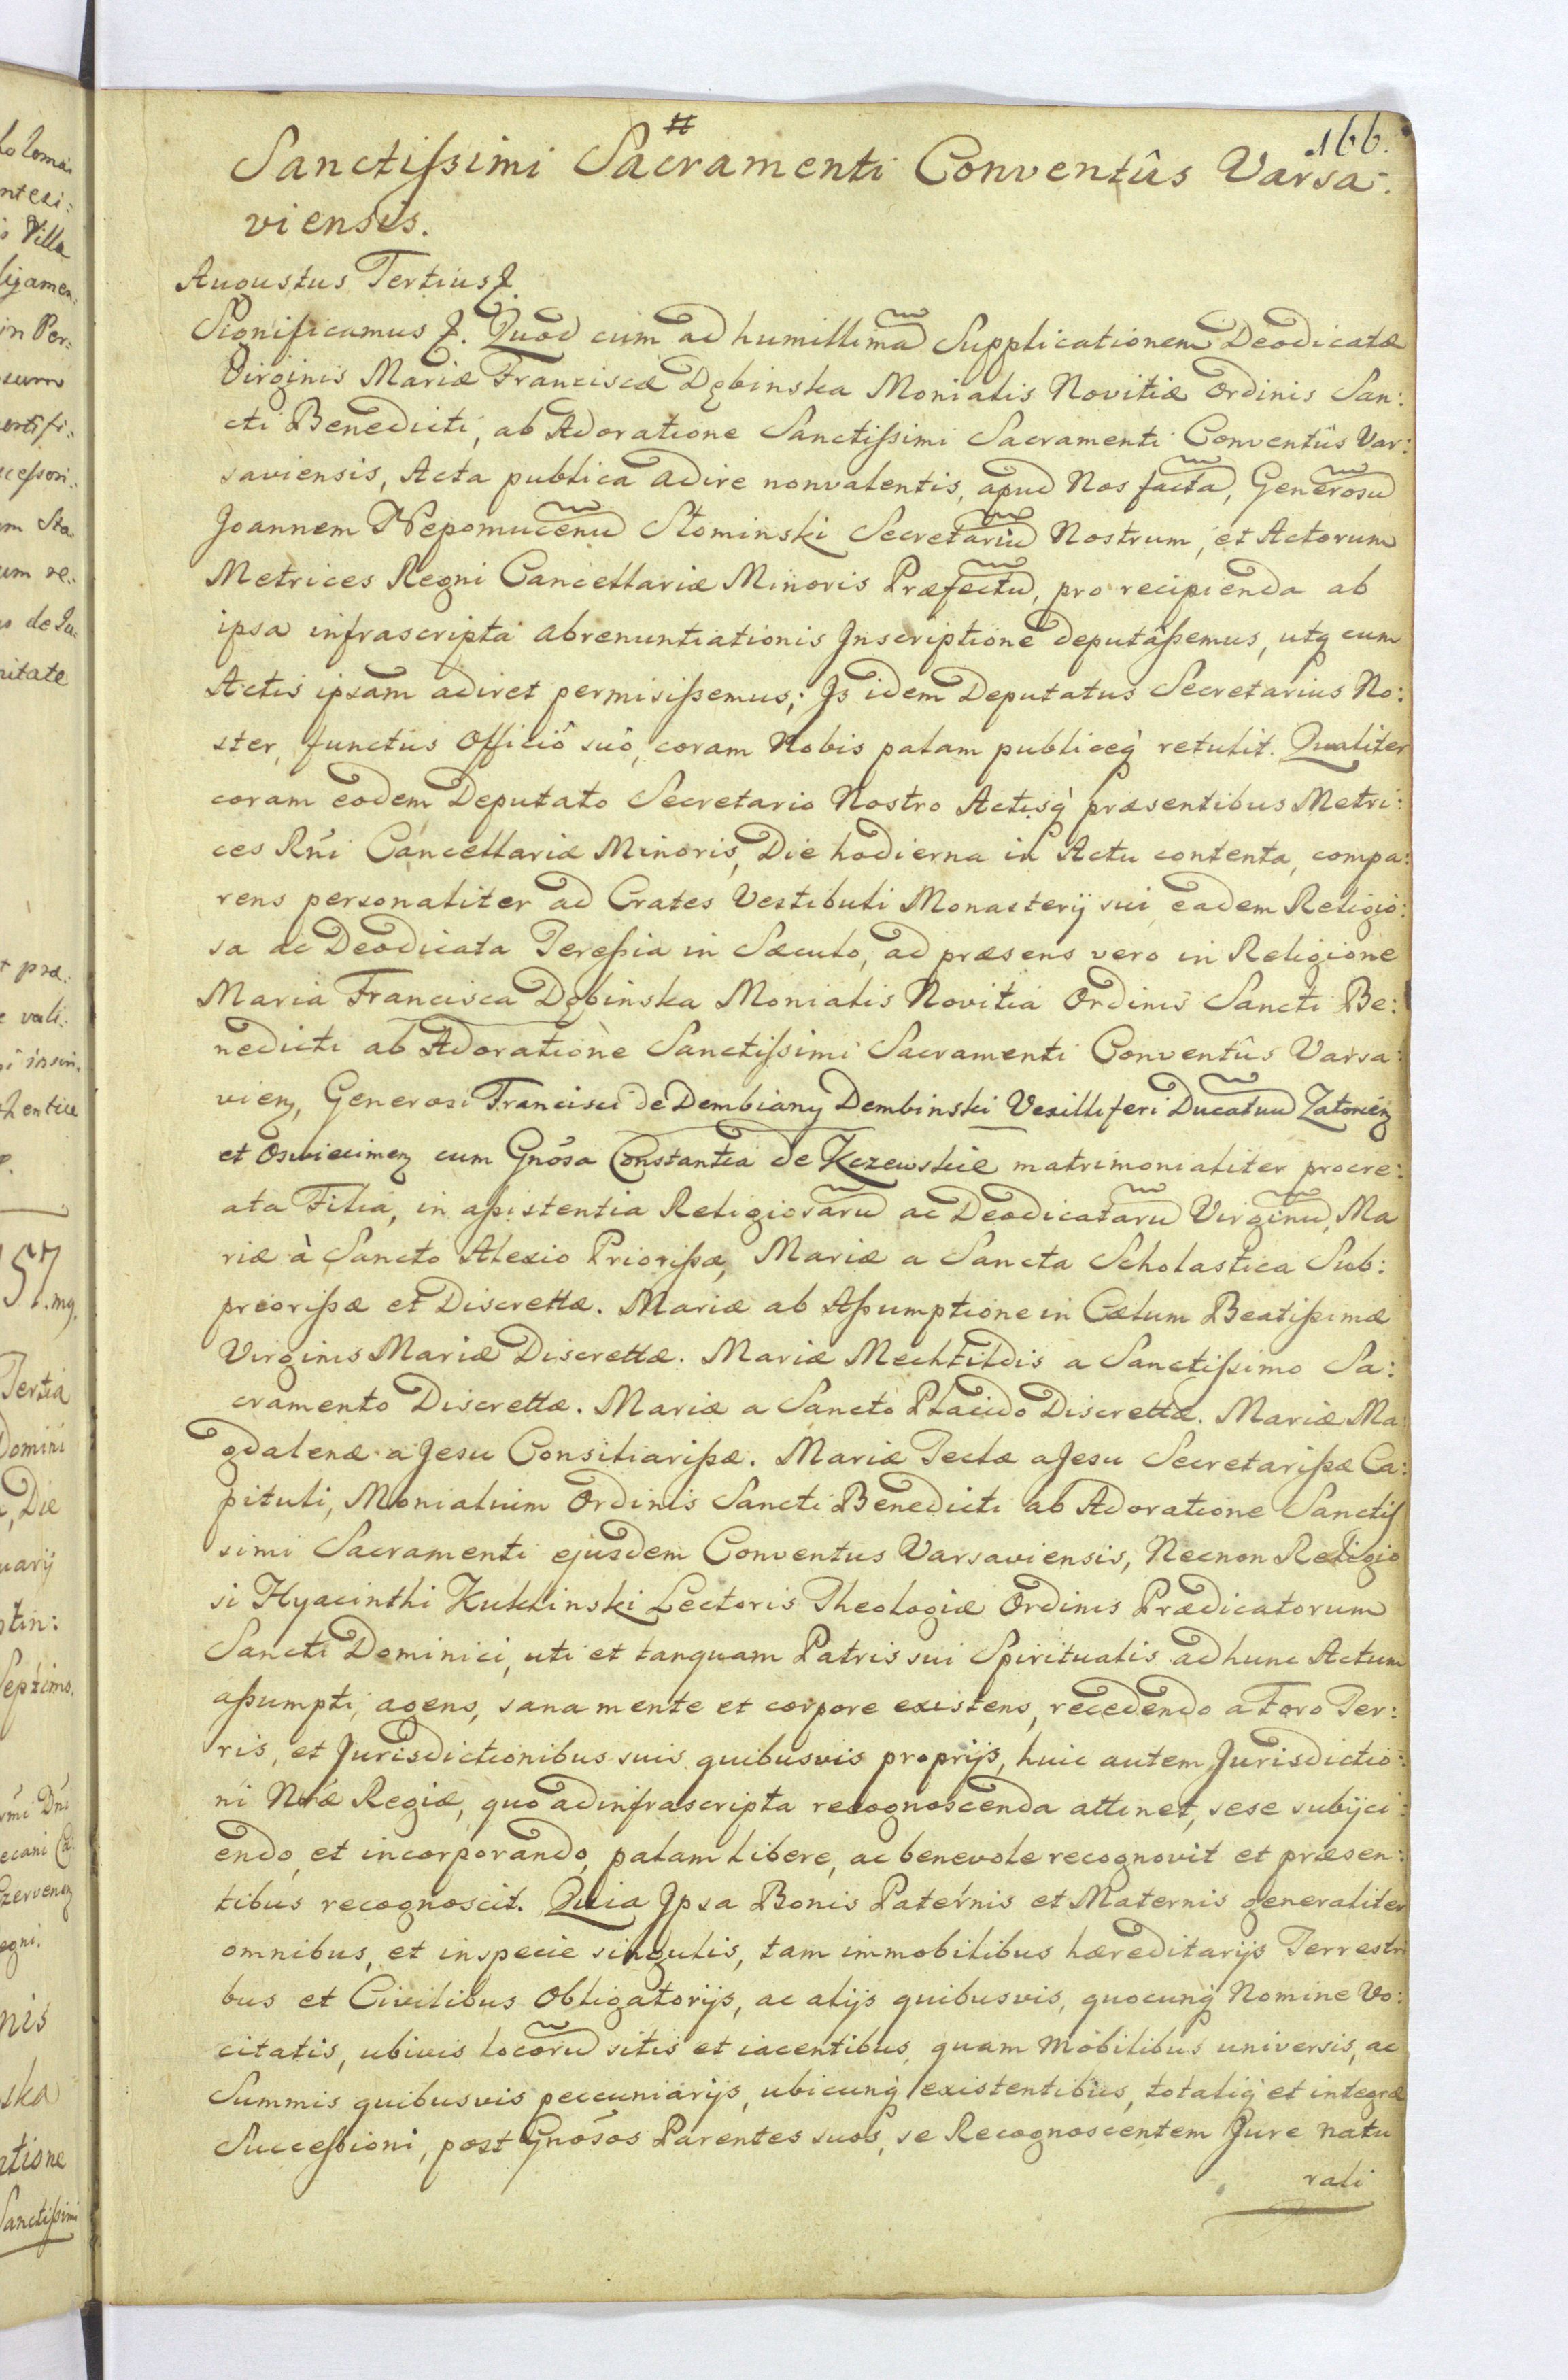 166.
#
Sanctißimi Sacramenti Conventûs Varsa:
viensis.
Augustus Tertius
Significamus. Quod cum ad humillimã Supplicationem Deodicatæ
Virginis Mariæ Franciscæ Dębinska Monialis Novitiæ Ordinis San:
cti Benedicti, ab Adoratione Sanctißimi Sacramenti Conventûs Var:
saviensis, Acta publica adire nonvalentis, apud Nos factã, Generosũ
Joannem Nepomucenũ Slominski Secretariũ Nostrum, et Actorum
Metrices Regni Cancellariæ Minoris Præfectũ, pro recipienda ab
ipsa infrascripta abrenuntiationis Inscriptione deputâßemus, utq cum
Actis ipsam adiret permisißemus; Is idem Deputatus Secretarius No:
ster, functus Officiô suô, coram Nobis palam publiceq̀ retulit. Qualiter
coram eodem Deputato Secretario Nostro Actisq̀ præsentibus Metri:
ces Rńi Cancellariæ Minoris, Die hodierna in Actu contenta, compa:
rens personaliter ad Crates Vestibuli Monasterij sui eadem Religio:
sa ac Deodicata Tereßia in Sæculo, ad præsens vero in Religione
Maria Francisca Dębinska Monialis Novitia Ordinis Sancti Be:
nedicti ab Adoratione Sanctißimi Sacramenti Conventûs Varsa:
vieņ, Generosi Francisci de Dembiany Dembinski Vexilliferi Ducatuũ Zatorieņ
et Oswiecimeņ cum Gnõsa Constantia de Kczewskie matrimonialiter procre:
ata Filia, in aßistentia Religiosarũ ac Deodicatarũ Virginũ, Ma
riæ à Sancto Alexio Priorißæ, Mariæ a Sancta Scholastica Sub:
priorißæ et Discrettæ. Mariæ ab Aßumptione in Cælum Beatißimæ
Virginis Mariæ Discrettæ. Mariæ Mechtildis a Sanctißimo Sa:
cramento Discrettæ. Mariæ a Sancto Placido Discrettæ. Mariæ Ma:
gdalenæ a Jesu Consiliarißæ. Mariæ Teclæ a Jesu Secretarißæ Ca:
pituli, Monialium Ordinis Sancti Benedicti ab Adoratione Sanctis
simi Sacramenti ejusdem Conventus Varsaviensis, Necnon Religio
si Hyacinthi Kuklinski Lectoris Theologiæ Ordinis Prædicatorum
Sancti Dominici, uti et tanquam Patris sui Spiritualis ad hunc Actum
aßumpti, agens, sana mente et corpore existens, recedendo a Foro Ter:
ris, et Jurisdictionibus suis quibusvis proprijs, huic autem Jurisdictio:
ni Nræ Regiæ, quo ad infrascripta recognoscenda attinet, sese subijci:
endo, et incorporando, palam libere, ac benevole recognovit et præsen:
tibus recognoscit. Quia Ipsa Bonis Paternis et Maternis generaliter
omnibus, et in specie singulis, tam immobilibus hæreditarijs Terrestri
bus et Civilibus Obligatorijs, ac alijs quibusvis, quocunq̀ Nomine Vo:
citatis, ubivis locorũ sitis et iacentibus, quam mobilibus universis, ac
Summis quibusvis peccuniarijs, ubicunq̀ existentibus, totaliq̀ et integræ
Succeßioni, post Gnõsos Parentes suos, se Recognoscentem Jure natu
rali